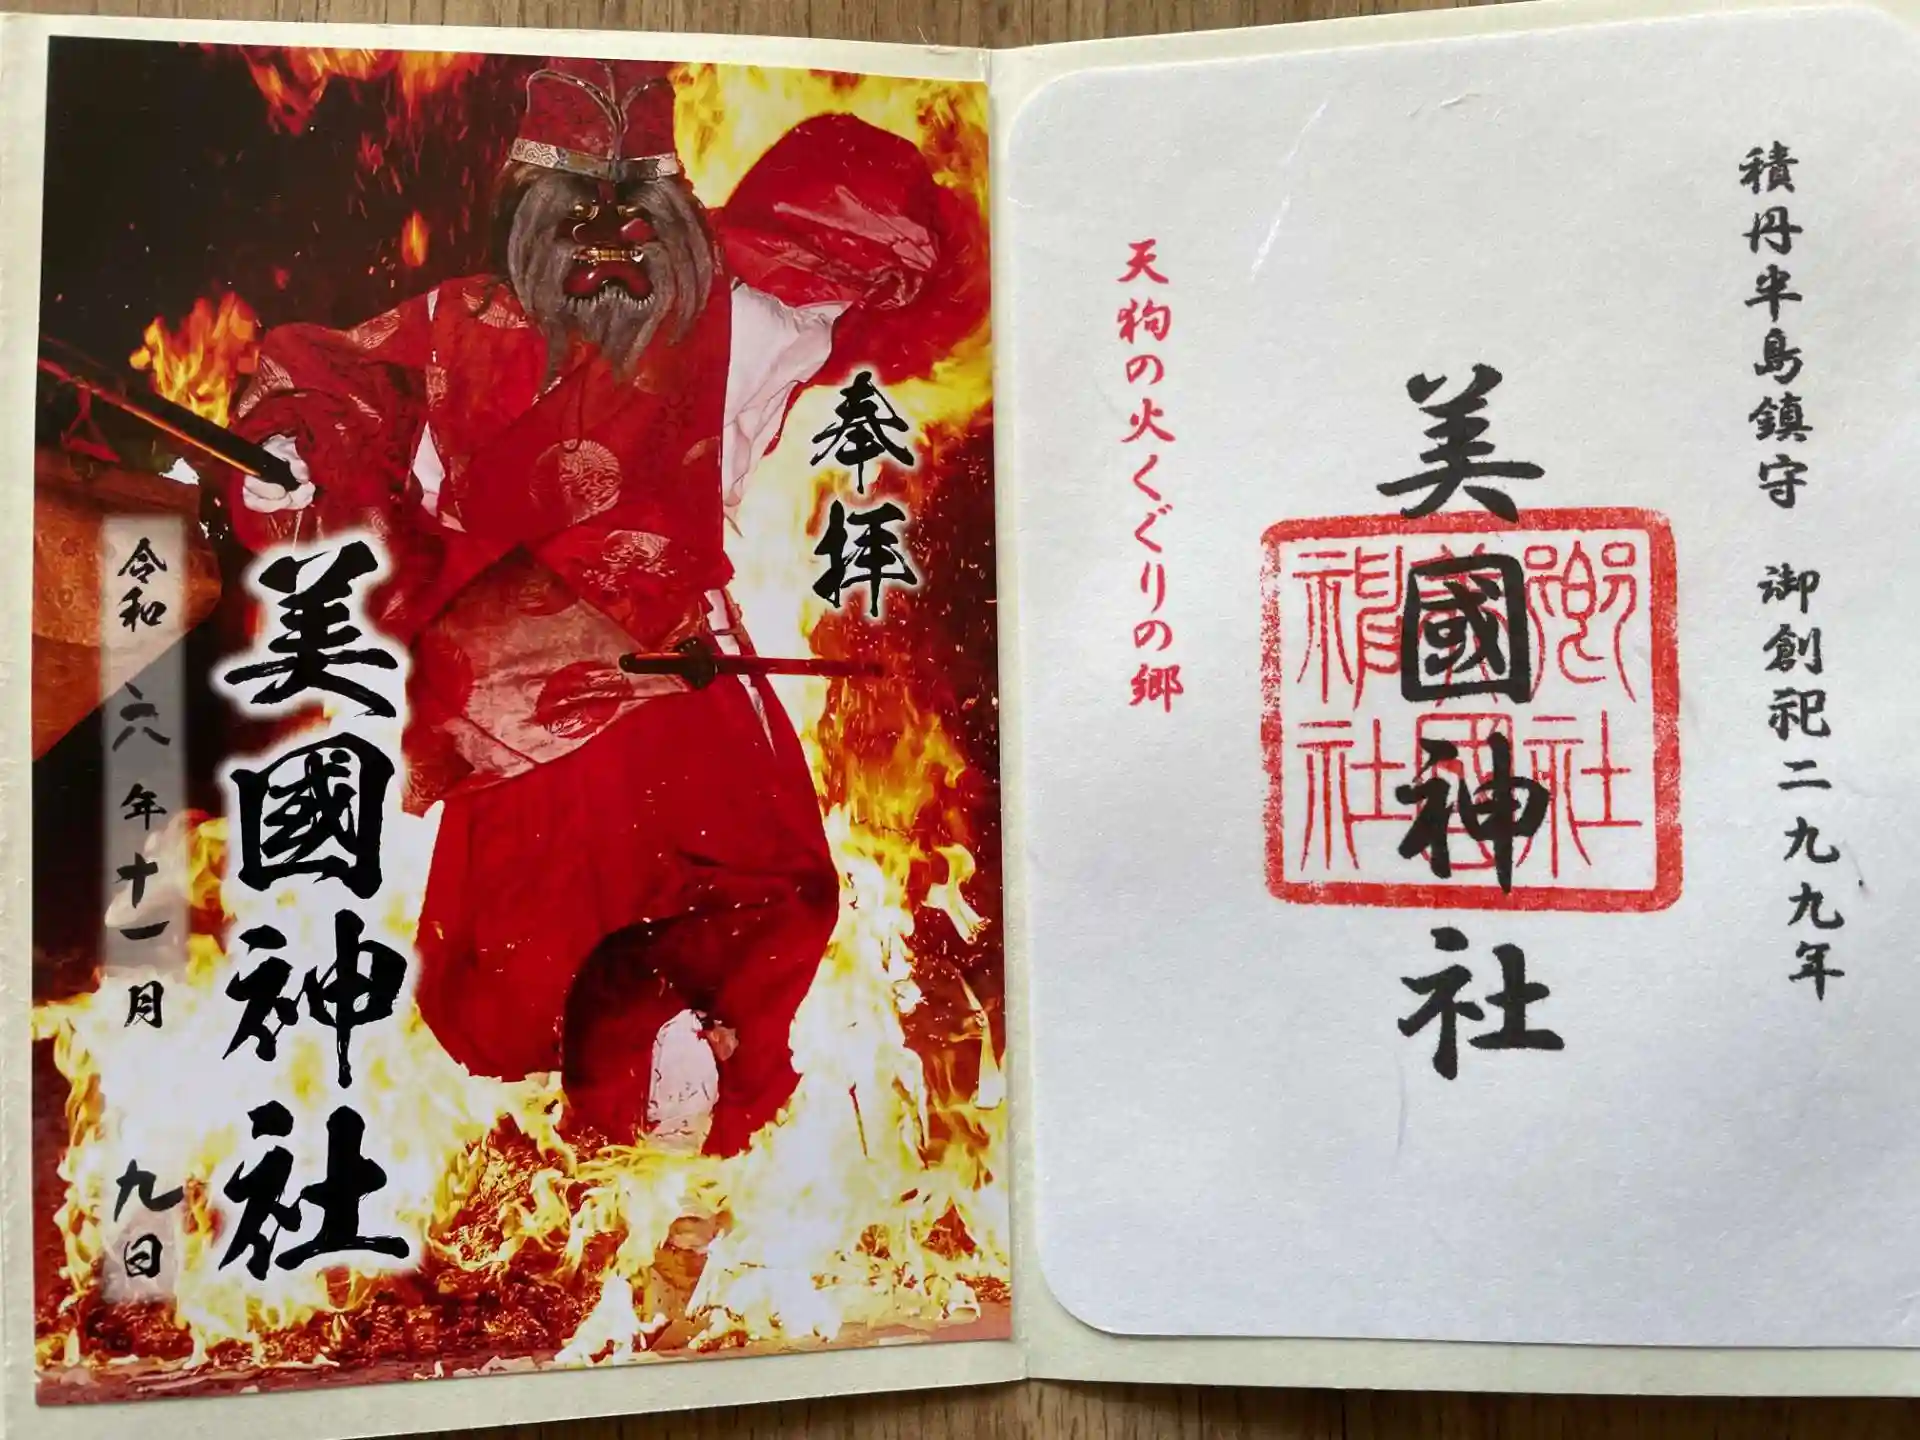 積丹半島鎮守 御創祀二九九年
美國神社
天狗の火くぐりの郷
奉拝
美國神社
令和六年十一月九日
郷社
美国
神社